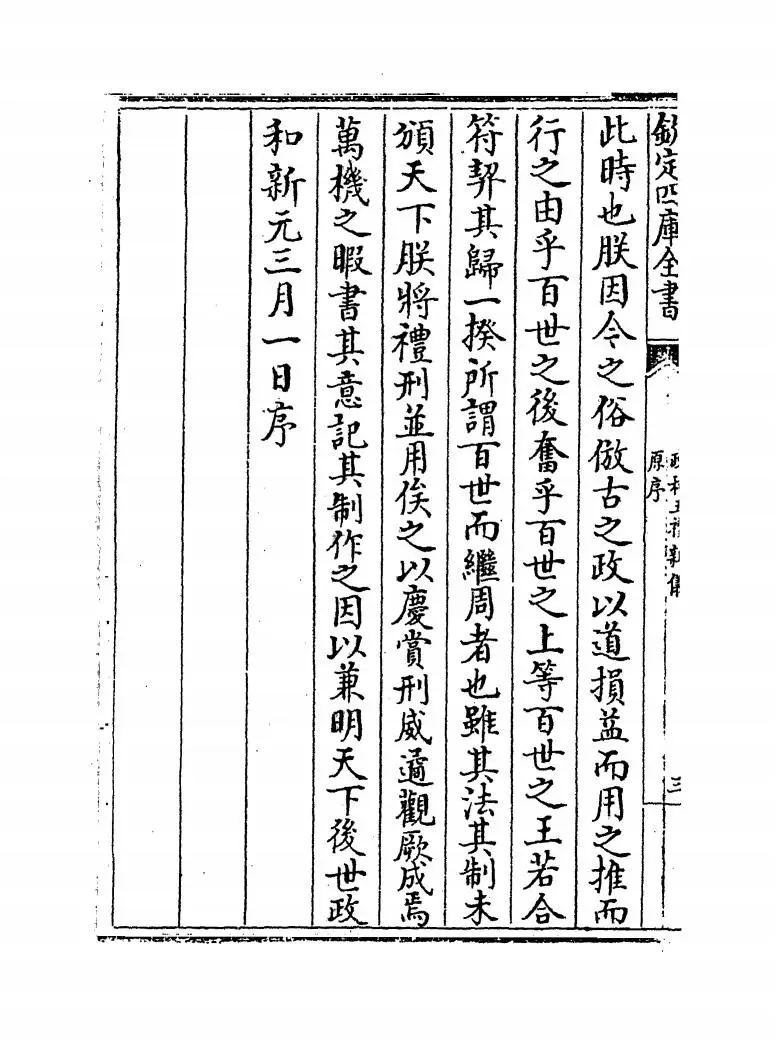 欽定四庫全書
政和五禮新儀
原序
三
此時也朕因今之俗倣古之政以道損益而用之推而
行之由乎百世之後奮乎百世之上等百世之王若合
符契其歸一揆所謂百世而繼周者也雖其法其制未
頒天下朕將禮刑並用俟之以慶賞刑威遹觀厥成焉
萬機之暇書其意記其制作之因以兼明天下後世政
和新元三月一日序